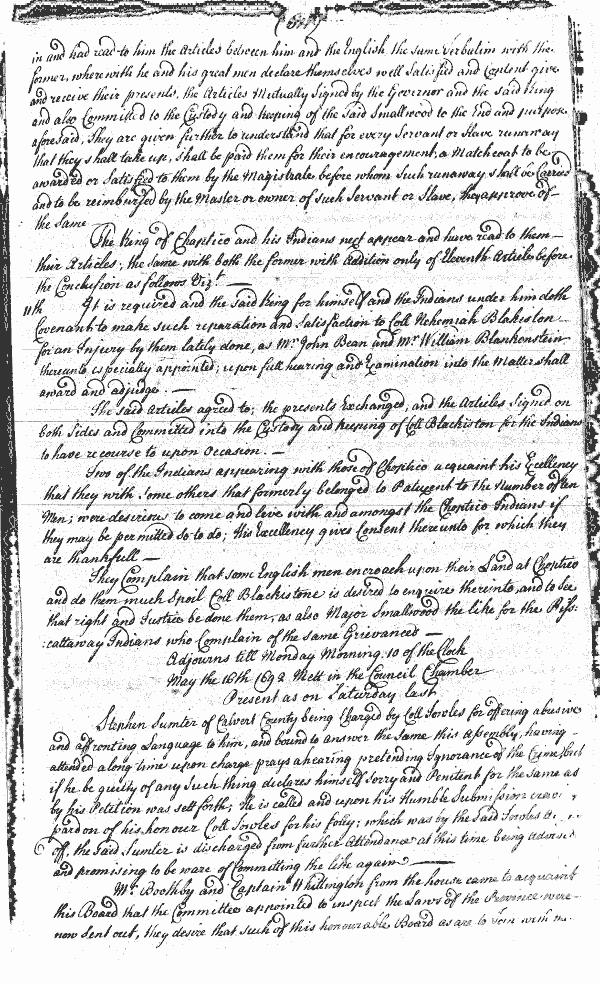 in and had read to him the Articles between him and the English the same Verbatim with the
former, wherewith he and his great men declare themselves well Satisfied and Content give
and receive their presents, the Articles Mutually Signed by the Governor and the said King
and also Committed to the Custody and keeping of the said Smallwood to the End and purpose
aforesaid, They are given further to understand that for every Servant or Slave runaway
that they shall take up, shall be paid them for their encouragement, a Matchcoat to be
awarded or Satisfied to them by the Magistrate before whom Such runaway shall be Carried
and to be reimbursed by the Master or owner of such Servant or Slave, they approve of
the Same
The King of Choptico and his Indians next appear and have read to them
their Articles, the same with both the former with Addition only of Eleventh Article before
the Conclusion as follows Vizt
11th It is required and the Said King for himself and the Indians under him doth
Covenant to make such reparation and Satisfaction to Coll Nehemiah Blakeston
for an Injury by them lately done, as Mr John Bean and Mr William Blankenstein
thereunto especially appointed; upon full hearing and Examination into the Matter shall
award and adjudge. —
The said Articles agreed to; the presents Exchanged, and the Articles Signed on
both Sides and Committed into the Custody and keeping of Coll Blackiston for the Indians
to have recourse to upon Occasion. —
Two of the Indians appearing with those of Choptico acquaint his Excellency
that they with Some others that formerly belonged to Patuxent to the Number of ten
Men; were desirous to come and live with and amongst the Choptico Indians if
they may be permitted So to do; His Excellency gives Consent thereunto for which they
are thankfull —
They Complain that some English men encroach upon their Land at Choptico
and do them much Spoil Coll Blackistone is desired to enquire thereinto, and to See
that right and Justice be done them, as also Major Smallwood the like for the Piss:
:cattaway Indians who Complain of the same Grievances —
Adjourns till Monday Morning 10 of the Clock
May the 16th 1692 Mett in the Council Chamber
Present as on Saturday last
Stephen Sumter of Calvert County being Charged by Coll Jowles for offering abusive
and affronting Language to him, and bound to answer the Same this Assembly, having
attended a long time upon charge prays a hearing pretending Ignorance of the Crime, but
if he be guilty of any Such thing declares himself Sorry and Penitent for the Same as
by his Petition was sett forth; He is called and upon his Humble Submission crav
pardon of his honour Coll Jowles for his folly; which was by the Said Jowles
off, the Said Sumter is discharged from further Attendance at this time being advised
and promising to be ware of Committing the like again —
Mr Boothby and Captain Whittington from the house came to acquaint
this Board that the Committee appointed to inspect the Laws of the Province were
now Sent out, they desire that such of this honourable Board as are to Join with